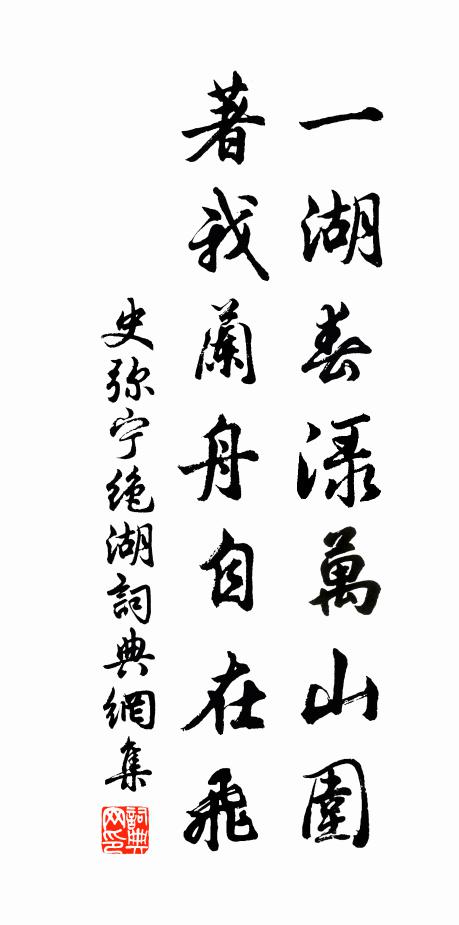 一湖春渌萬山圍
著我蘭舟自在飛
史弥宁絶湖詞典網集
詞典网印